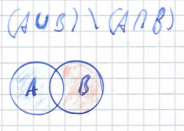 (A∪B) \ (A∩B)
A B